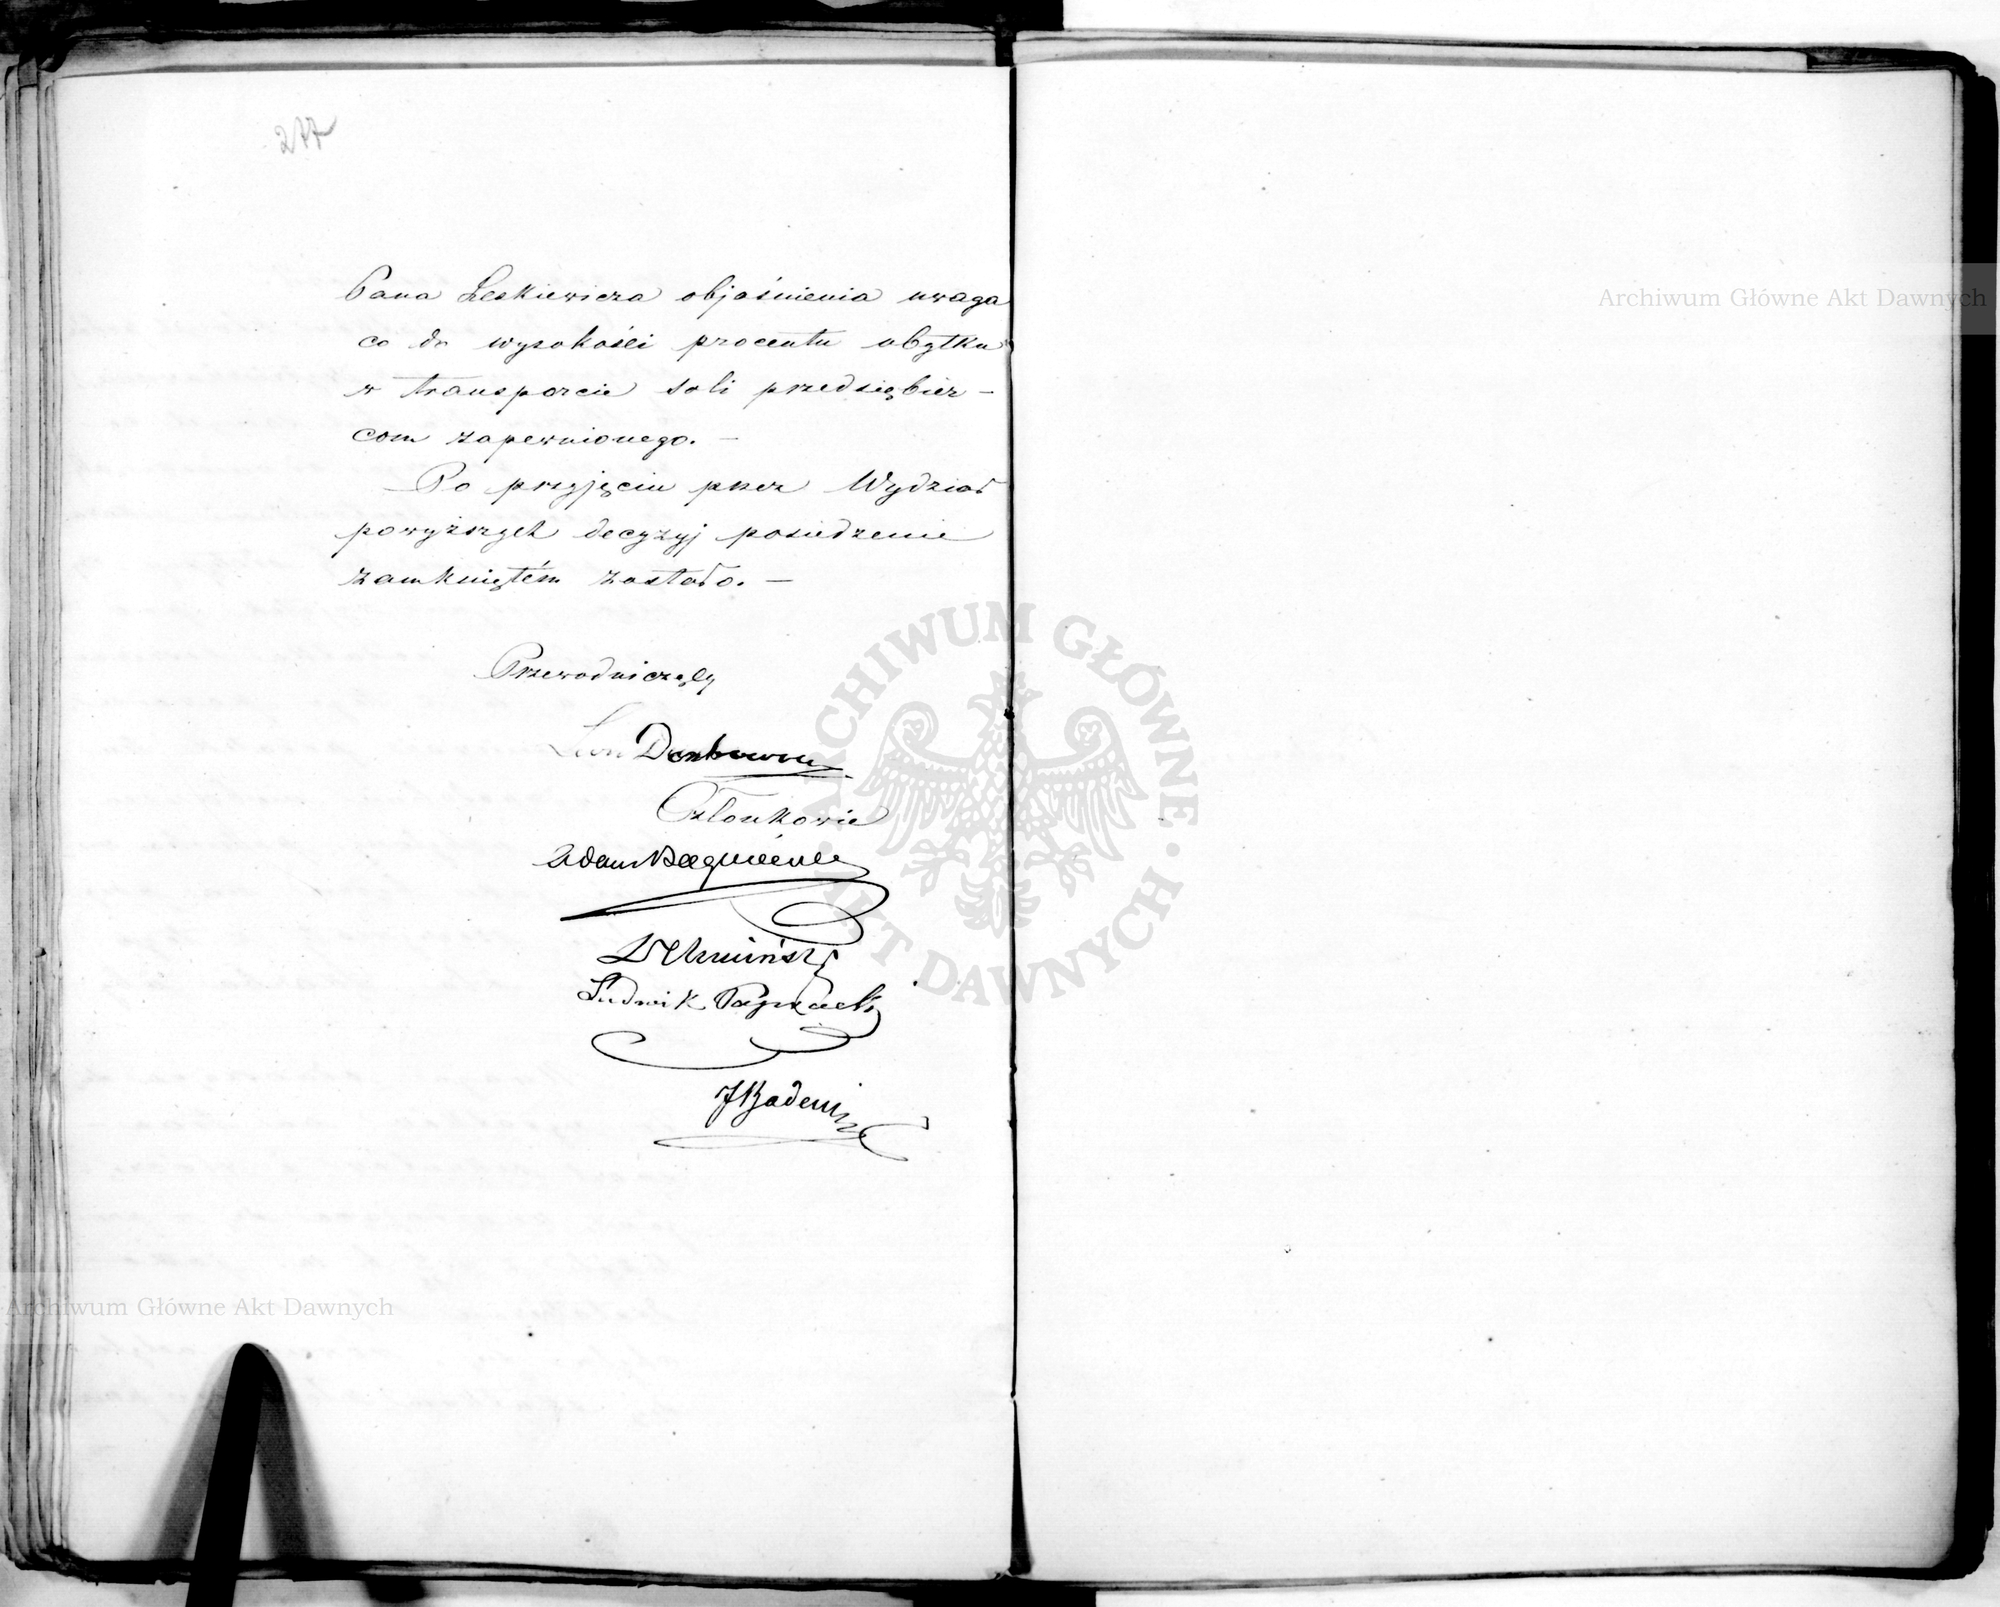 277
Pana Leskiewicza objaśnienia uwaga
co do wysokości procentu ubytku
w transporcie soli przedsiębier-
com zapewnionego. —
Po przyjęciu przez Wydział
powyższych decyzyj posiedzenie
zamkniętém zostało. —
Przewodniczący
Leon Dembowski
Członkowie
Adam
Ludwik
JBadeni
ARCHIWUM GŁÓWNE AKT DAWNYCH
Archiwum Główne Akt Dawnych
Archiwum Główne Akt Dawnych